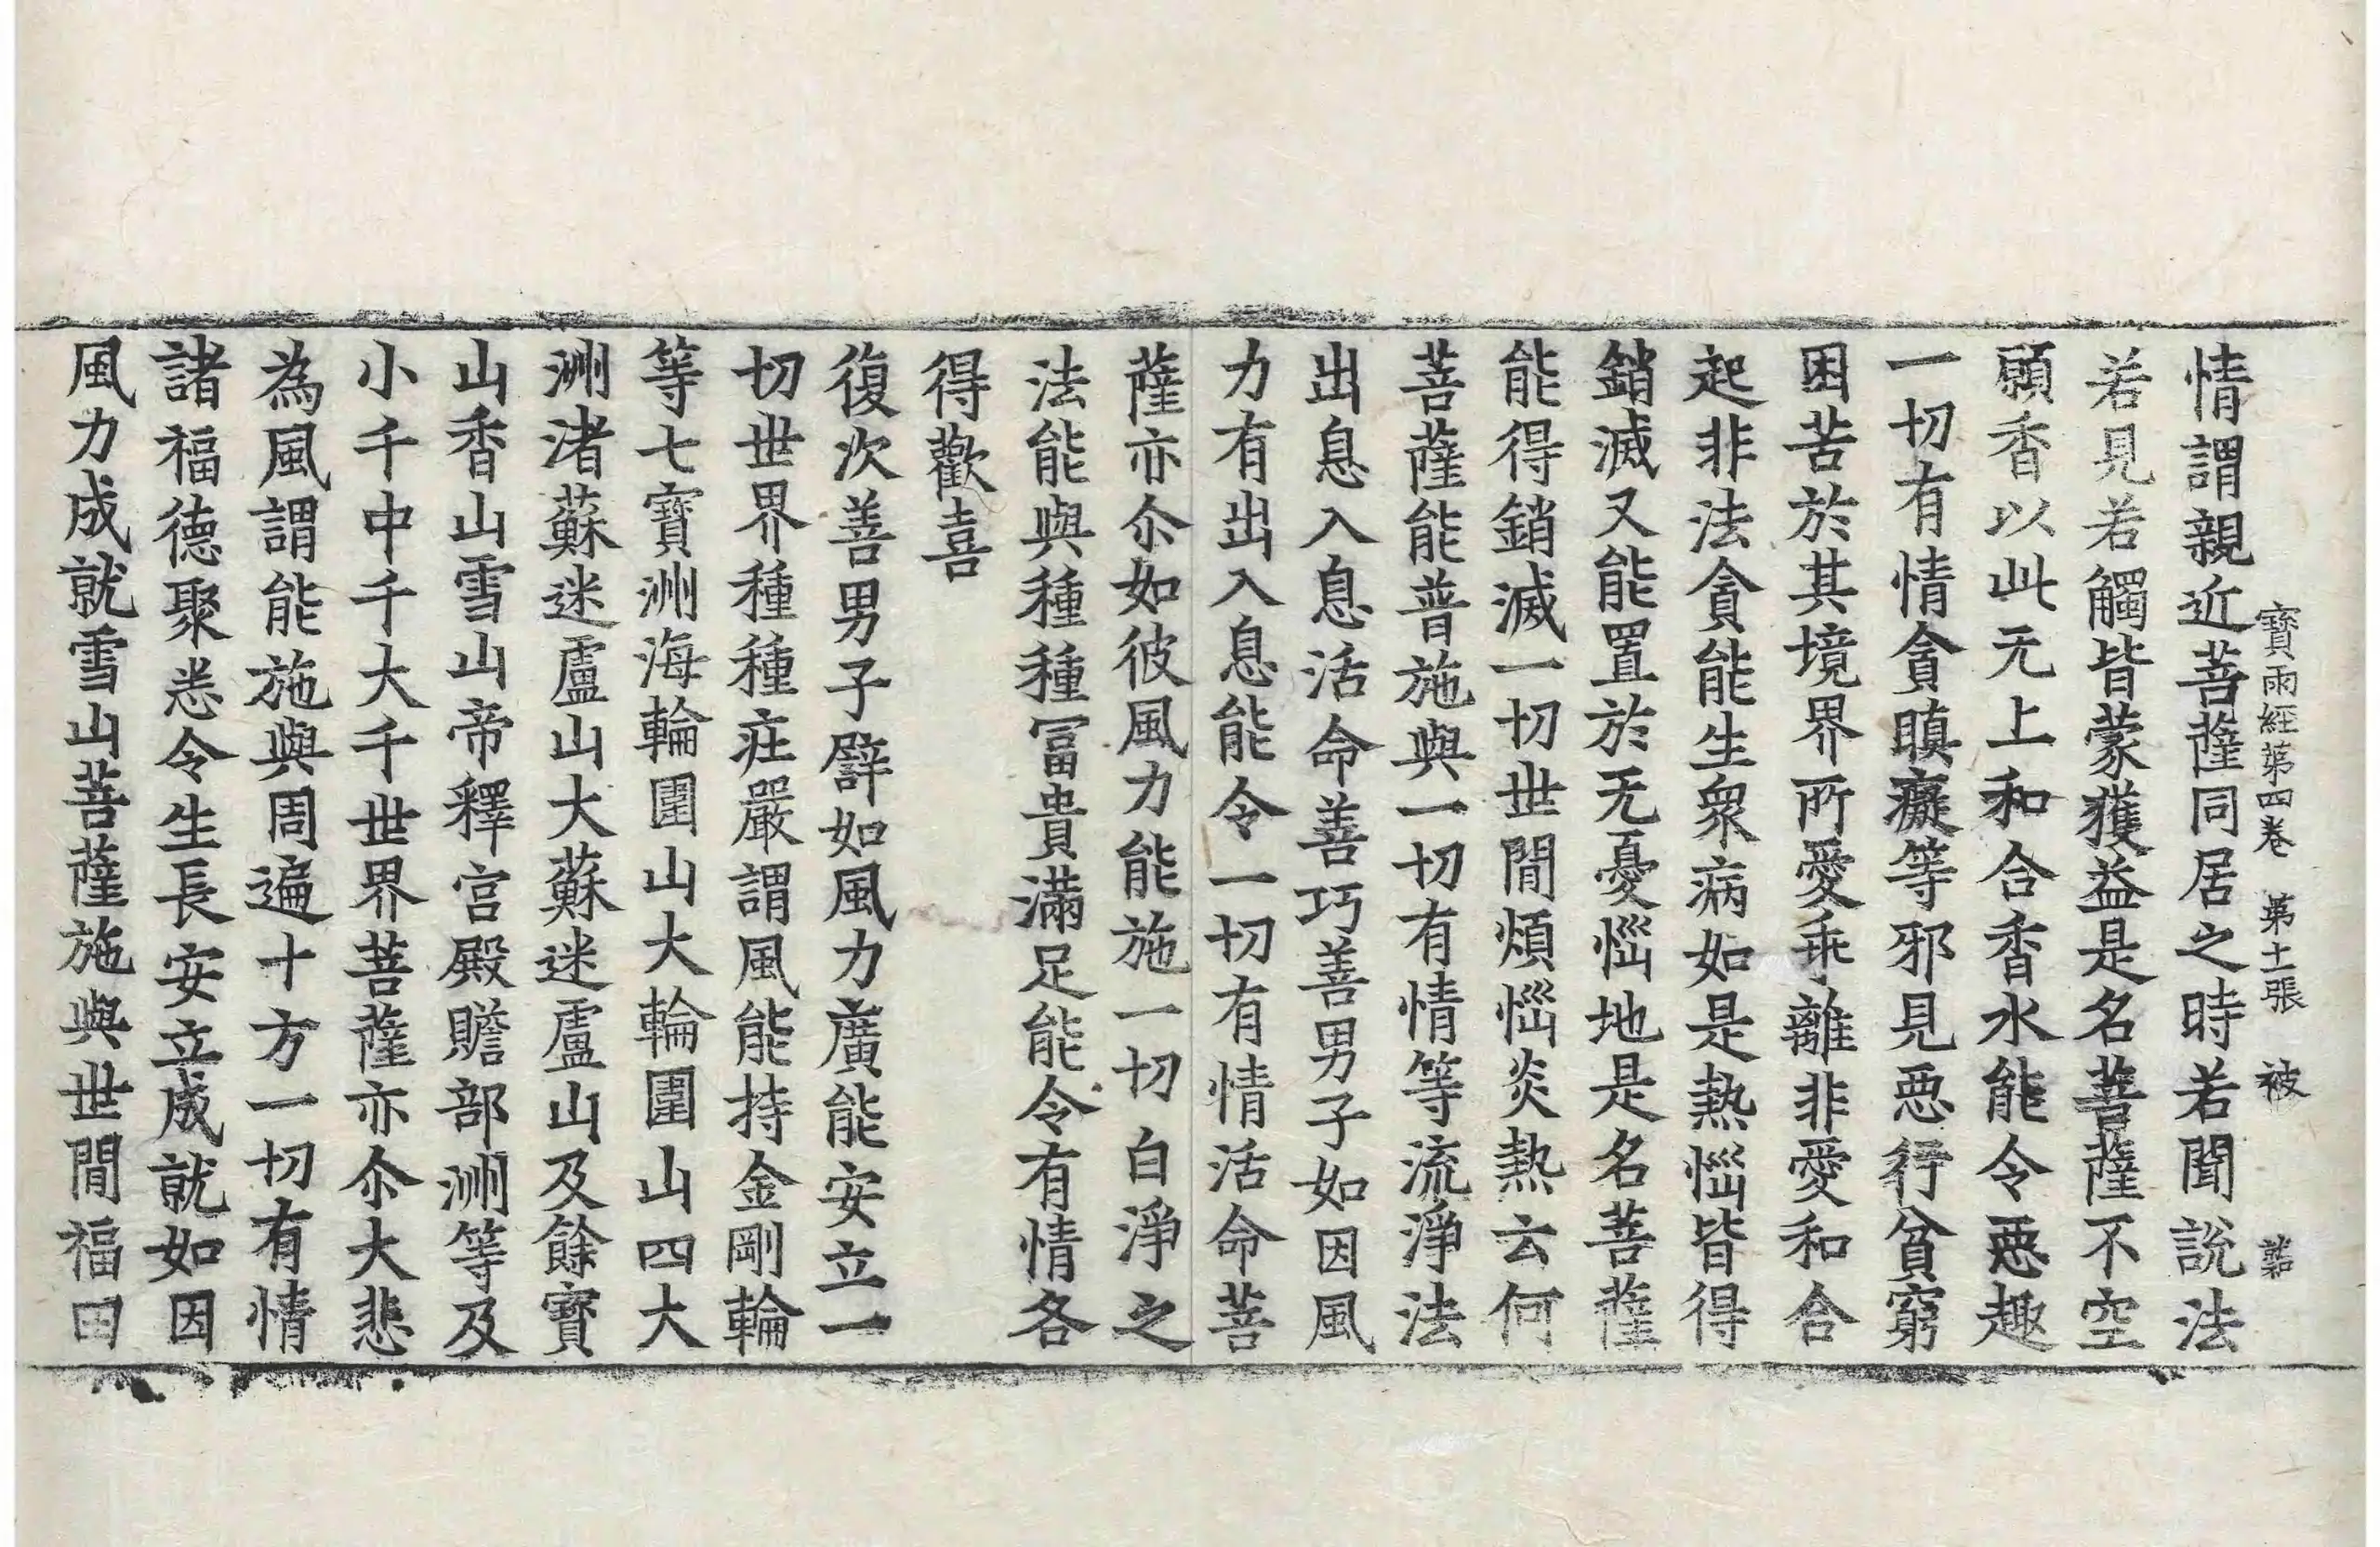 寶雨經第四卷　第十一張　被
情謂親近菩薩同居之時若聞說法
若見若觸皆蒙獲益是名菩薩不空
願香以此无上和合香水能令惡趣
一切有情貪瞋癡等邪見惡行貧窮
困苦於其境界所愛乖離非愛和合
起非法貪能生衆病如是熱惱皆得
銷滅又能置於无憂惱地是名菩薩
能得銷滅一切世間煩惱炎熱云何
菩薩能普施與一切有情等流淨法
出息入息活命善巧善男子如因風
力有出入息能令一切有情活命菩
薩亦尒如彼風力能施一切白淨之
法能與種種冨貴滿足能令有情各
得歡喜
復次善男子譬如風力廣能安立一
切世界種種莊嚴謂風能持金剛輪
等七寶洲海輪圍山大輪圍山四大
洲渚蘇迷盧山大蘇迷盧山及餘寶
山香山雪山帝釋宮殿贍部洲等及
小千中千大千世界菩薩亦尒大悲
為風謂能施與周遍十方一切有情
諸福德聚悉令生長安立成就如因
風力成就雪山菩薩施與世間福田